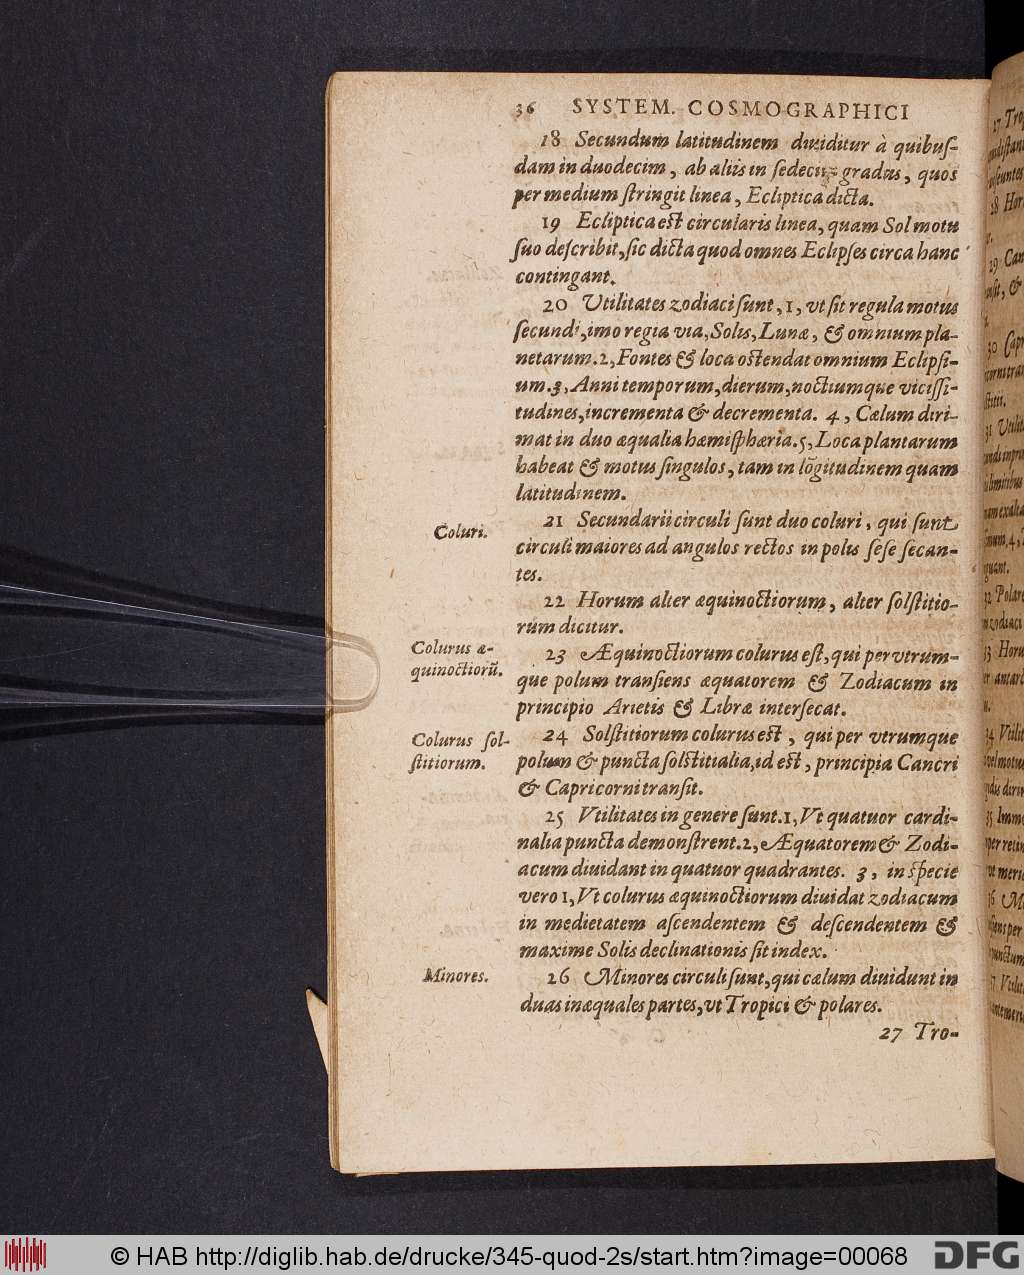 36 SYSTEM. COSMOGRAPHICI
18 Secundum latitudinem diuiditur à quibuſ-
dam in duodecim, ab aliis in ſedecim gradus, quos
per medium ſtringit linea, Ecliptica dicta.
19 Ecliptica eſt circularis linea, quam Sol motu
ſuo deſcribit, ſic dicta quod omnes Eclipſes circa hanc
contingant.
20 Vtilitates zodiaci ſunt, 1, vt ſit regula motus
ſecundi, imo regia via, Solis, Lunæ, & omnium pla-
netarum. 2, Fontes & loca oſtendat omnium Eclipſi-
um. 3, Anni temporum, dierum, noctiumque viciſſi-
tudines, incrementa & decrementa. 4, Cælum diri-
mat in duo æqualia hæmiſphæria. 5, Loca plantarum
habeat & motus ſingulos, tam in lõgitudinem quam
latitudinem.
Coluri.
21 Secundarii circuli ſunt duo coluri, qui ſunt
circuli maiores ad angulos rectos in polis ſeſe ſecan-
tes.
22 Horum alter æquinoctiorum, alter ſolſtitio-
rum dicitur.
Colurus æ-
quinoctiorũ.
23 Æquinoctiorum colurus eſt, qui per vtrum-
que polum tranſiens æquatorem & Zodiacum in
principio Arietis & Libræ interſecat.
Colurus ſol-
ſtitiorum.
24 Solſtitiorum colurus eſt, qui per vtrumque
polum & puncta ſolſtitialia, id eſt, principia Cancri
& Capricorni tranſit.
25 Vtilitates in genere ſunt. 1, Vt quatuor cardi-
nalia puncta demonſtrent. 2, Æquatorem & Zodi-
acum diuidant in quatuor quadrantes. 3, in ſpecie
vero 1, Vt colurus æquinoctiorum diuidat zodiacum
in medietatem aſcendentem & deſcendentem &
maxime Solis declinationis ſit index.
Minores.
26 Minores circuli ſunt, qui cælum diuidunt in
duas inæquales partes, vt Tropici & polares.
27 Tro-
© HAB http://diglib.hab.de/drucke/345-quod-2s/start.htm?image=00068
DFG